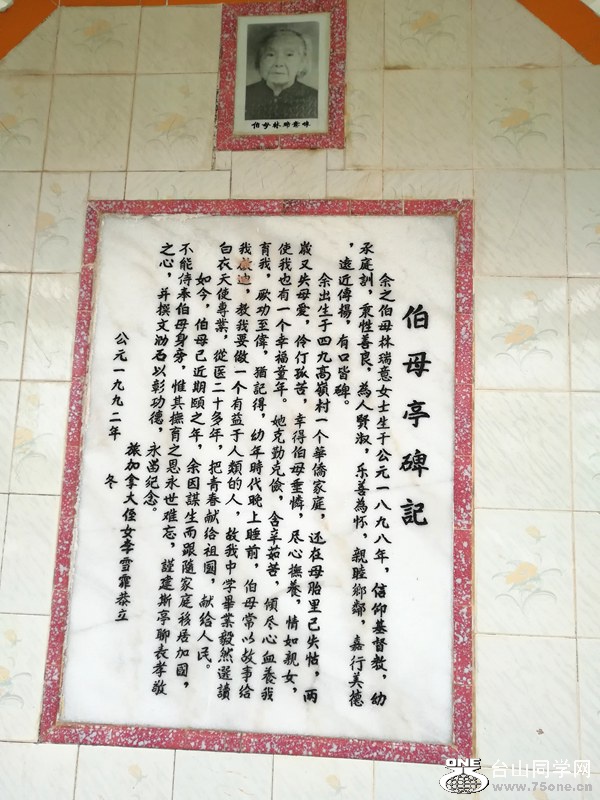 伯母林瑞意嫜
伯母亭碑記
余之伯母林瑞意女士生于公元一八九八年，信仰基督教，幼
承庭訓，秉性善良，為人賢淑，乐善為怀，親睦鄉鄰，嘉行美德
，遠近傳揚，有口皆碑。
余出生于四九高嶺村一个華僑家庭，还在母胎里已失怙，两
歲又失母愛，伶仃孤苦，幸得伯母垂憐，尽心撫养，情如親女，
使我也有一个幸福童年。她克勤克儉，含辛茹苦，傾尽心血養我
育我，厥功至偉，猶記得，幼年時代晚上睡前，伯母常以故事给
我啟迪，教我要做一个有益于人類的人，故我中学畢業毅然選讀
白衣天使專業，從医二十多年，把青春献给祖國，献给人民。
如今，伯母已近期颐之年，余因謀生而跟随家庭移居加國，
不能侍奉伯母身旁，惟其撫育之恩永世难忘，謹建斯亭聊表孝敬
之心，并撰文泐石以彰功德，永留纪念。
旅加拿大侄女李雪霏恭立
公元一九九二年　冬
ONE
台山同学网
www.75one.cn